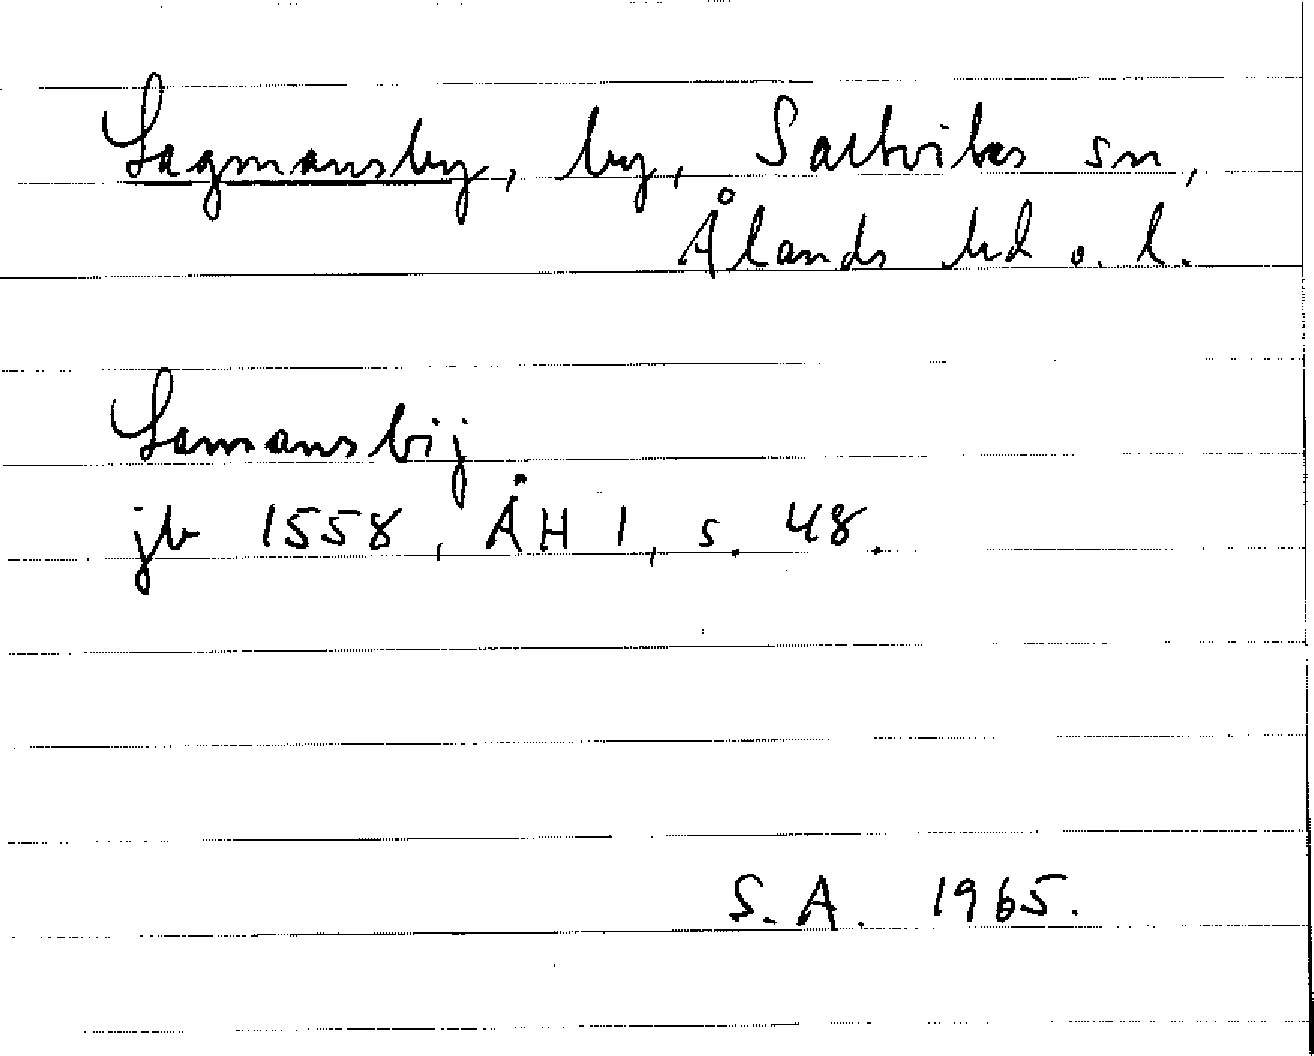 Lagmansby, by, Saltviks sn,
Ålands hd o. l.
Lamansbij
jb 1558, ÅH 1, s. 48.
S. A. 1965.